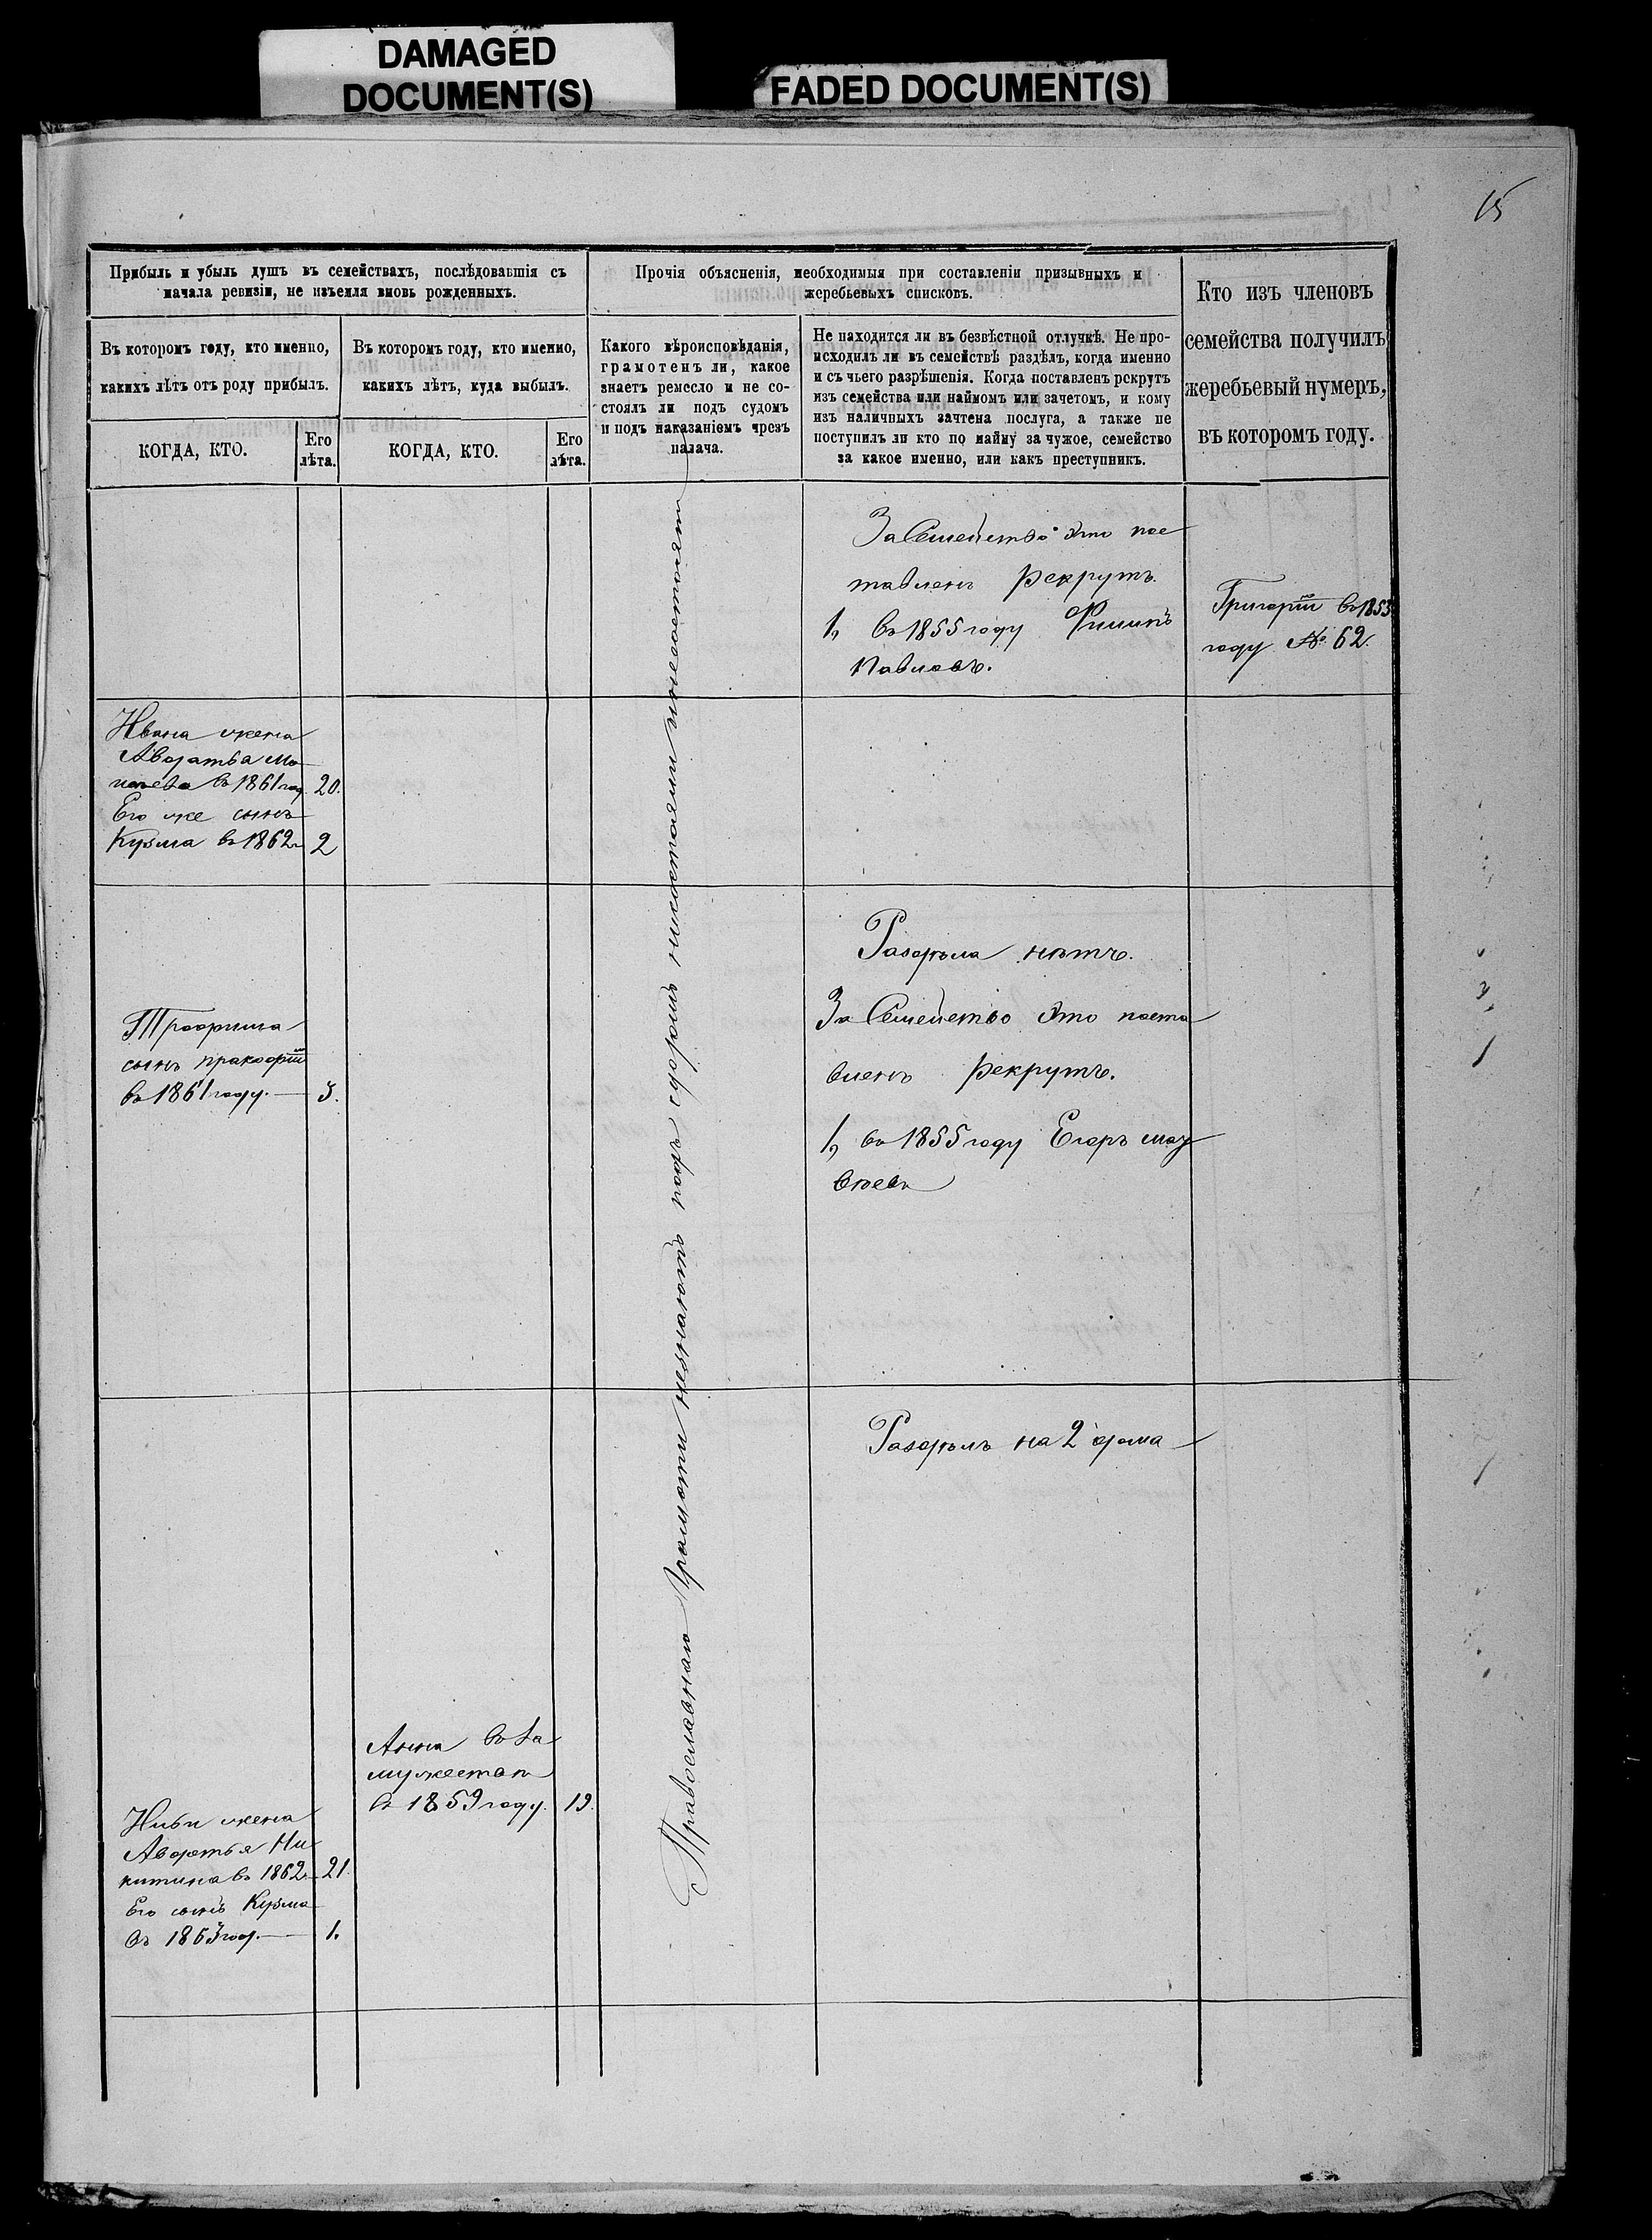 DAMAGED
DOCUMENT(S)
FADED DOCUMENT(S)
15
Прибыль и убыль душъ въ семействахъ, послѣдовавшія съ
начала ревизіи, не изъемля вновь рожденныхъ.
Въ которомъ году, кто именно,
какихъ лѣтъ отъ роду прибылъ.
КОГДА, КТО.
Его
лѣта.
Въ которомъ году, кто именно,
какихъ лѣтъ, куда выбылъ.
КОГДА, КТО.
Его
лѣта.
Прочія объясненія, необходимыя при составленіи призывныхъ и
жеребьевыхъ списковъ.
Какого вѣроисповѣданія,
грамотенъ ли, какое
знаетъ ремесло и не со-
стоялъ ли подъ судомъ
и подъ наказаніемъ чрезъ
палача.
Не находится ли въ безвѣстной отлучкѣ. Не про-
исходилъ ли въ семействѣ раздѣлъ, когда именно
и съ чьего разрѣшенія. Когда поставленъ рекрутъ
изъ семейства или наймомъ или зачетомъ, и кому
изъ наличныхъ зачтена послуга, а также не
поступилъ ли кто по найму за чужое, семейство
за какое именно, или какъ преступникъ.
Кто изъ членовъ
семейства получилъ
жеребьевый нумеръ,
въ которомъ году.
За Семейство это пос
тавленъ рекрутъ.
1, въ 1855 году Филипъ
Павловъ.
Григорій въ 1853
году № 62.
Ивана жена
Авдатья
въ 1861 год. 20.
Его же сынъ
Кузма въ 1862 2
Раздѣла нѣтъ.
За Семейство это поста
вленъ рекрутъ.
1, въ 1855 году Егоръ мат
вѣевъ
Трофима
сынъ пракофій
въ 1861 году. 3.
Раздѣлъ на 2 дома
Анна въ за
мужества
въ 1859 году. 19.
жена
Авдотья Ни
китина въ 1862 21.
Его сынъ Кузма
въ 1863 год. 1.
Православнаго Грамоти незнаютъ подъ судомъ несостояли инесостоятъ